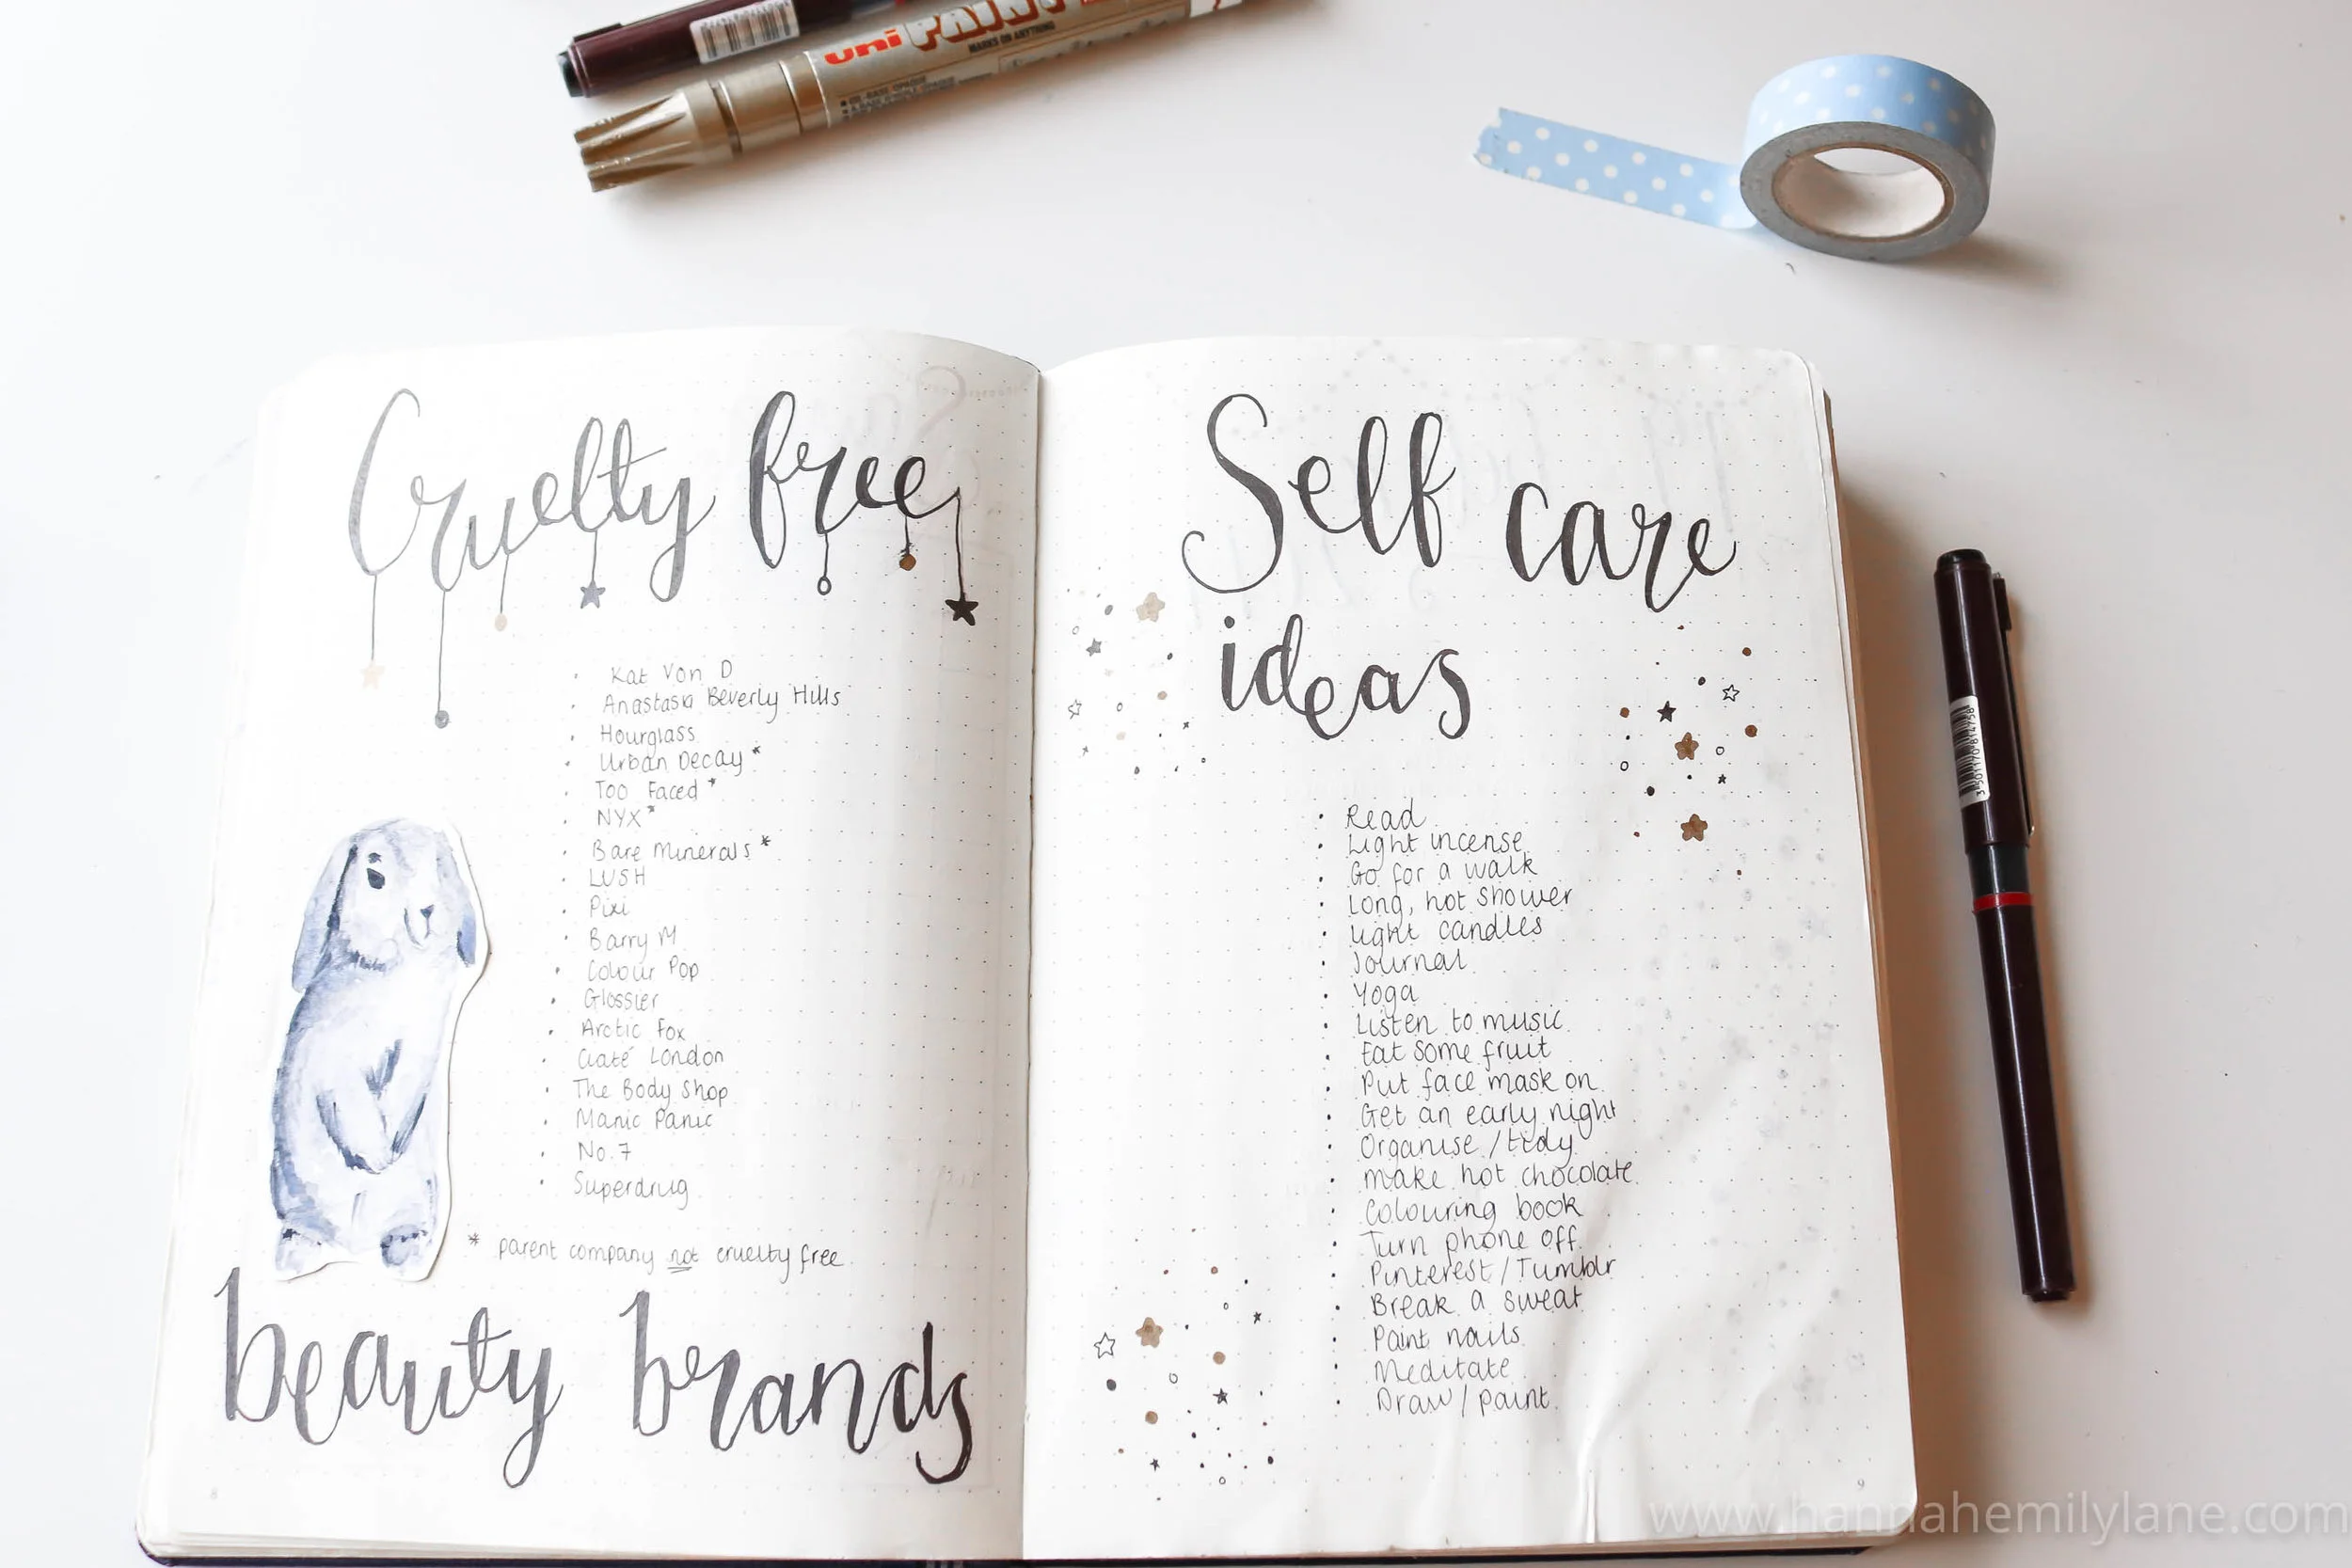 uni PAINT
MARKS ON ANYTHING
Cruelty free
Kat Von D
Anastasia Beverly Hills
Hourglass
Urban Decay *
Too Faced *
NYX *
Bare Minerals *
LUSH
Pixi
Barry M
Colour Pop
Glossier
Arctic Fox
Ciaté London
The Body Shop
Manic Panic
No.7
Superdrug
* parent company not cruelty free
beauty brands
8
Self care
ideas
Read
Light incense
Go for a walk
Long, hot shower
Light candles
Journal
Yoga
Listen to music
Eat some fruit
Put face mask on
Get an early night
Organise / tidy
Make hot chocolate
Colouring book
Turn phone off
Pinterest / Tumblr
Break a sweat
Paint nails
Meditate
Draw / paint
9
3 501170 814758
www.hannahemilylane.com